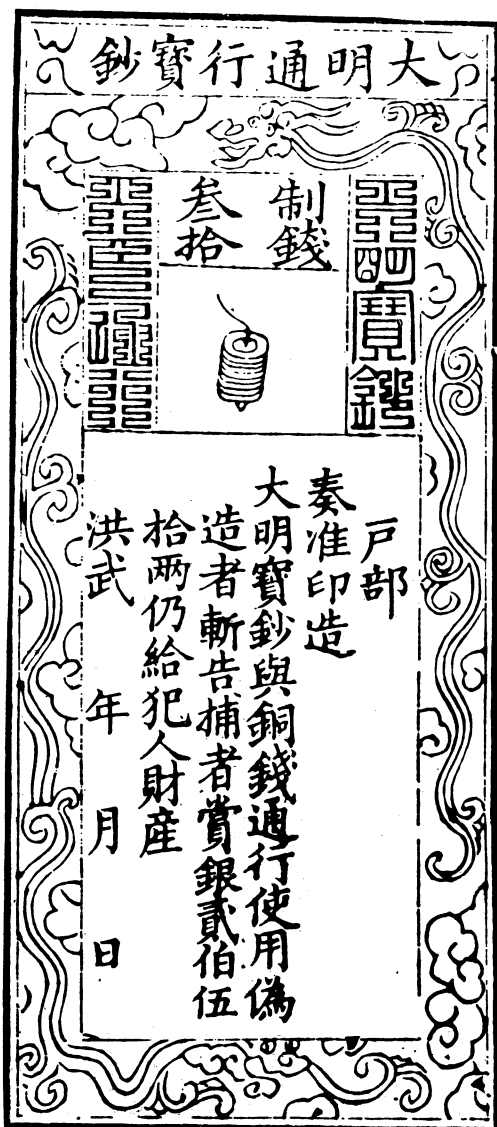 大明通行寶鈔
大明寶鈔
制錢
叁拾
天下通行
戸部
奏准印造
大明寶鈔與銅錢通行使用偽
造者斬告捕者賞銀貳伯伍
拾两仍給犯人財産
洪武 年 月 日